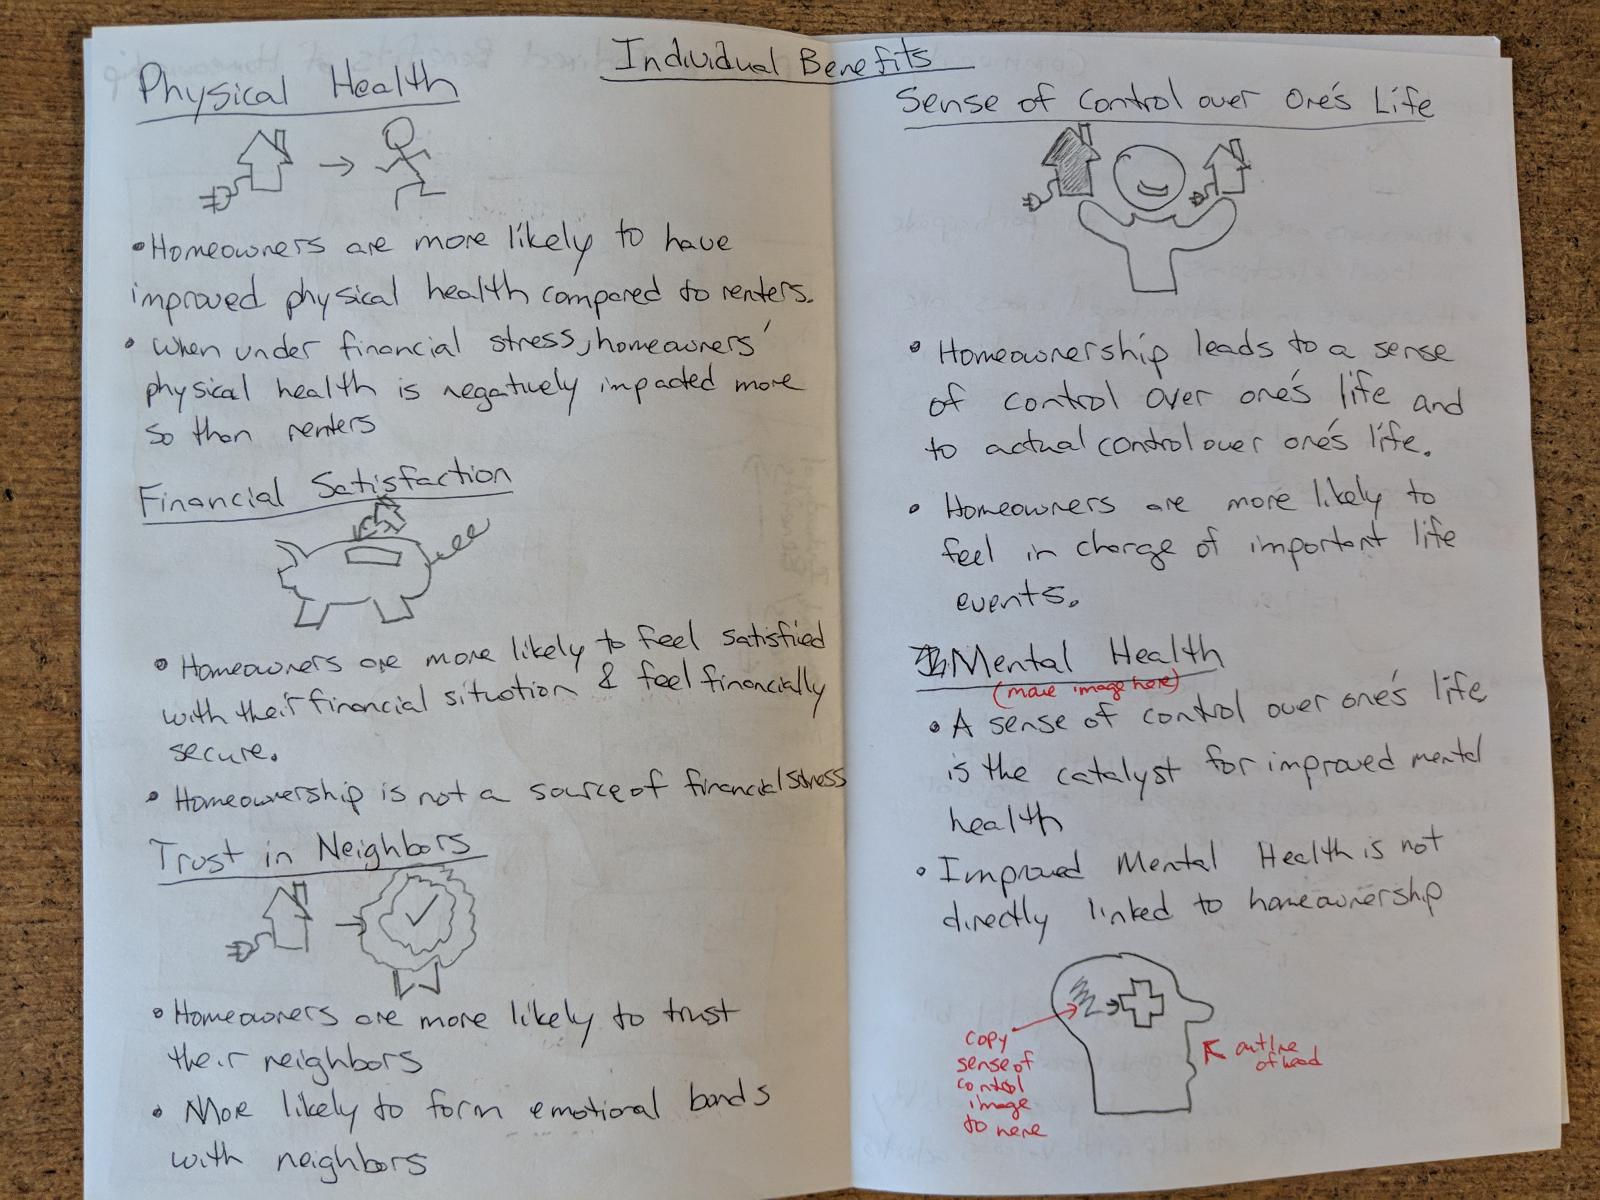 Individual Benefits
Physical Health
• Homeowners are more likely to have
improved physical health compared to renters.
• When under financial stress, homeowners'
physical health is negatively impacted more
so than renters
Financial Satisfaction
• Homeowners are more likely to feel satisfied
with their financial situation & feel financially
secure.
• Homeownership is not a source of financial stress
Trust in Neighbors
• Homeowners are more likely to trust
their neighbors
• More likely to form emotional bonds
with neighbors
Sense of Control over One's Life
• Homeownership leads to a sense
of control over one's life and
to actual control over one's life.
• Homeowners are more likely to
feel in charge of important life
events.
Mental Health
(move image here)
• A sense of control over one's life
is the catalyst for improved mental
health
• Improved Mental Health is not
directly linked to homeownership
copy
sense of
control
image
to here
outline
of head